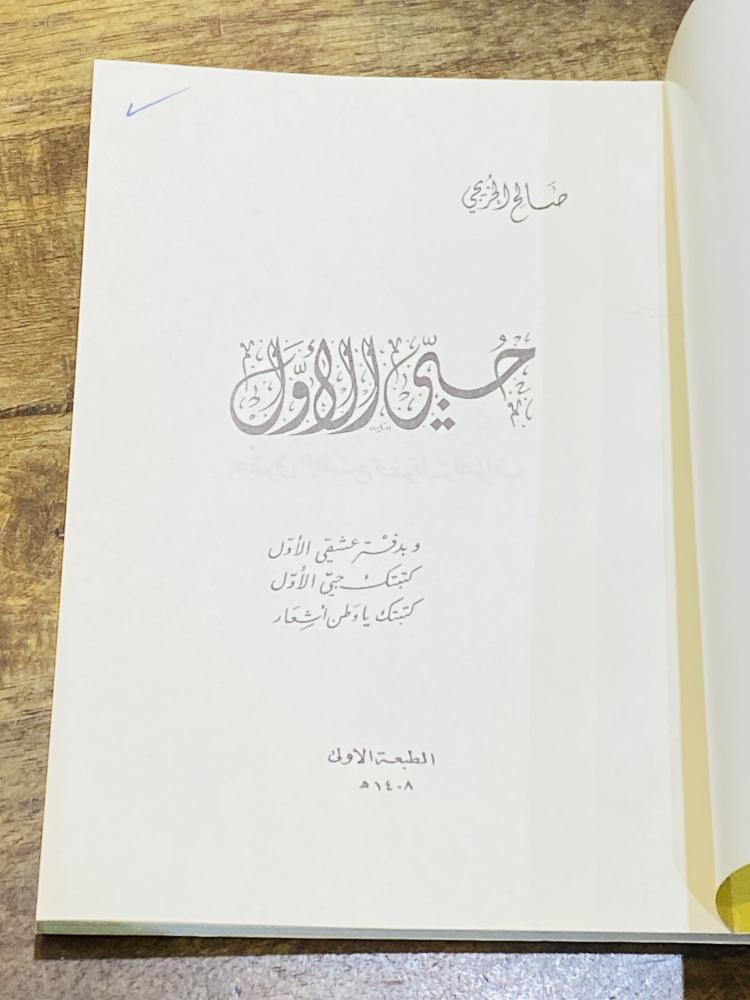 صالح الخريجي
حُبيّ الأوّل
وبدفتر عشقي الأوّل
كتبتك حبيّ الأوّل
كتبتك يا وَطن اشِعَار
الطبعة الاولى
١٤٠٨ ه